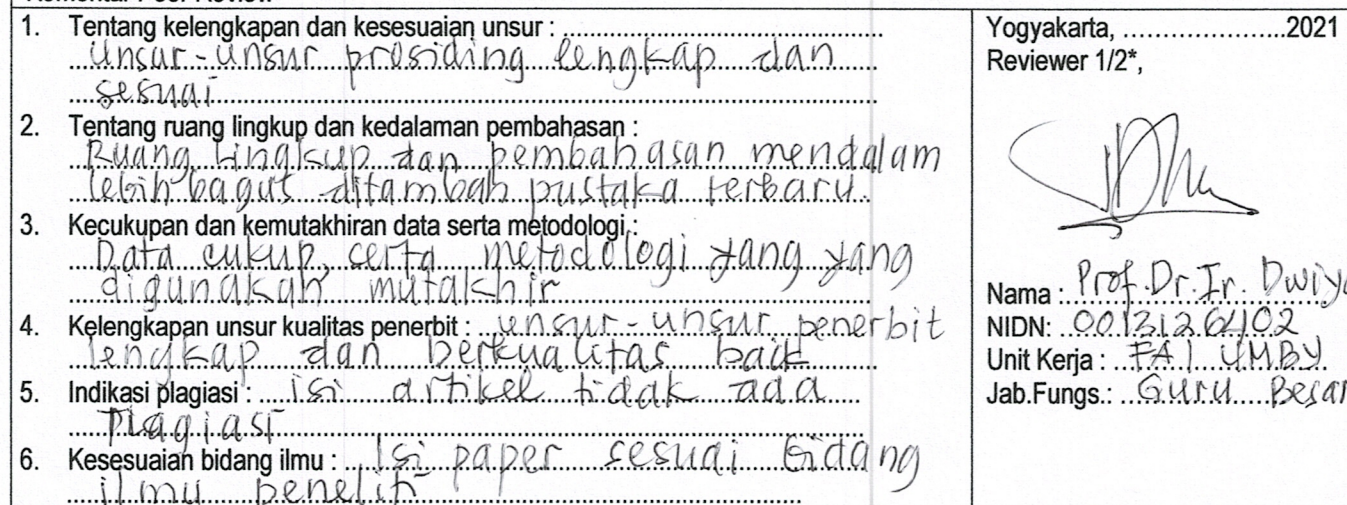 1. Tentang kelengkapan dan kesesuaian unsur : ......................................................
unsur-unsur prosiding lengkap dan
sesuai
2. Tentang ruang lingkup dan kedalaman pembahasan :
Ruang lingkup dan pembahasan mendalam
lebih bagus ditambah pustaka terbaru.
3. Kecukupan dan kemutakhiran data serta metodologi :
Data cukup, serta metodologi yang yang
digunakan mutakhir
4. Kelengkapan unsur kualitas penerbit : unsur-unsur penerbit
lengkap dan berkualitas baik
5. Indikasi plagiasi : isi artikel tidak ada
Plagiasi
6. Kesesuaian bidang ilmu : Isi paper sesuai bidang
ilmu peneliti
Yogyakarta, ......................2021
Reviewer 1/2*,
Nama : Prof. Dr. Ir. Dwiy
NIDN: 0013126402
Unit Kerja : FAI UMBY
Jab.Fungs.: Guru Besar